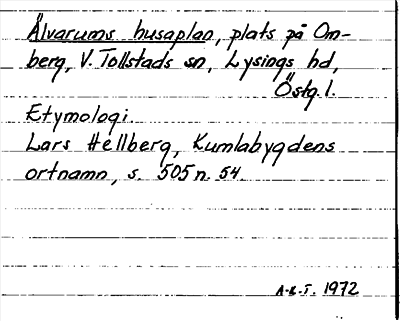 Älvarums husaplan, plats på Om-
berg, V. Tollstads sn, Lysings hd,
Östg. l.
Etymologi.
Lars Hellberg, Kumlabygdens
ortnamn, s. 505 n. 54.
A-K-T. 1972